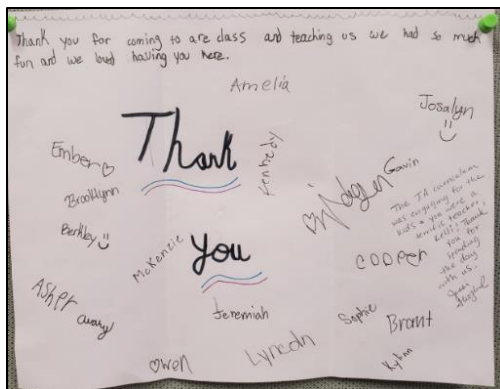 Thank you for coming to are class and teaching us we had so much
fun and we loved having you here.
Amelia
Josalyn
Thank
Kennedy
Ember
Gavin
Brooklynn
Berkley
The JA curriculum
was engaging for the
kids & you were a
terrific teacher,
Kelli! Thank
you for
spending
the day
with us.
you
McKenzie
Cooper
Asher
Avery
Jeremiah
Sophie
Brant
Owen
Lyncoln